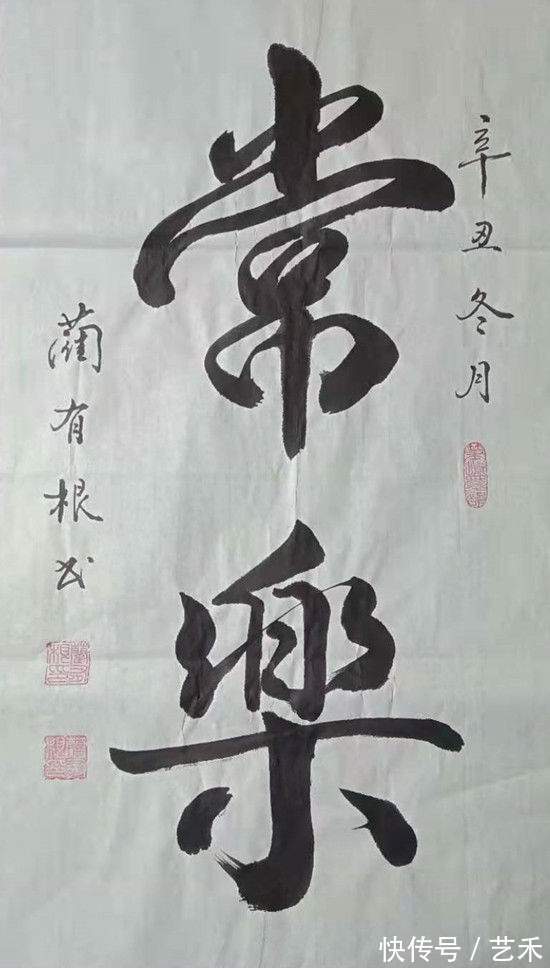 辛丑冬月
常樂
有根书
快传号 / 艺禾